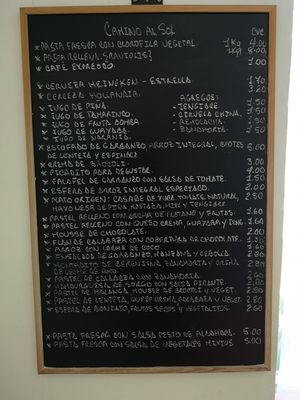 CAMINO AL SOL
CVE
* PASTA FRESCA CON CLOROFILA VEGETAL. 1KG 4.00
* PASTA RELLENA (RAVIOLIS) 1KG 8.00
* CAFÉ EXPRESSO. 1.00
* CERVEZA HEINEKEN - ESTRELLA. 1.70
* CERVEZA HOLLANDIA. 3.20
* JUGO DE PIÑA. AGREGOS: 1.50
* JUGO DE TAMARINDO. - JENGIBRE 1.50
* JUGO DE FRUTA BOMBA. - CIRUELA CHINA. 1.50
* JUGO DE GUAYABA. - REMOLACHA 1.50
* JUGO DE NARANJA. - ZANAHORIA 1.50
* ESTOFADO DE GARBANZO ARROZ INTEGRAL, BROTES
DE LENTEJA Y ESPINACA.
* CREMA DE BRÓCOLI. 3.00
* PICADITO PARA DEGUSTAR. 4.00
* FALAFEL DE GARBANZO CON SALSA DE TOMATE. 1.50
* ESFERA DE ARROZ INTEGRAL ESPECIADO. 2.00
* PLATO ORIGEN: CASABE DE YUCA TOMATE NATURAL, 2.50
MAYONESA DE PIÑA
* PASTEL RELLENO CON CREMA DE PLATANO Y FRUTOS. 1.60
* PASTEL RELLENO CON QUESO CREMA GUAYABA Y 1.60
* MOUSSE DE CHOCOLATE. 2.00
* FLAN DE CALABAZA CON COBERTURA DE CHOCOLATE.
* ARROZ CON LECHE DE COCO
* ENSALADA DE GARBANZO, MANZANA Y CEBOLLA
DE BERENJENA, ZANAHORIA Y CREMA
DE LECHE DE COCO
* PASTEL DE CALABAZA CON ZANAHORIA.
* HAMBURGUESA DE SORGO CON SALSA PICANTE.
* PASTEL DE MALANGA, MOUSSE DE BROCOLI Y VEGET. 2.80
* PASTEL DE LENTEJA, QUESO CREMA, CALABAZA Y VEGET. 2.80
* ESFERA DE BONIATO, FRUTOS SECOS Y VEGETALITOS. 2.60
* PASTA FRESCA CON SALSA PESTO DE ALBAHACA. 5.00
* PASTA FRESCA CON SALSA DE VEGETALES MIXTOS. 5.00